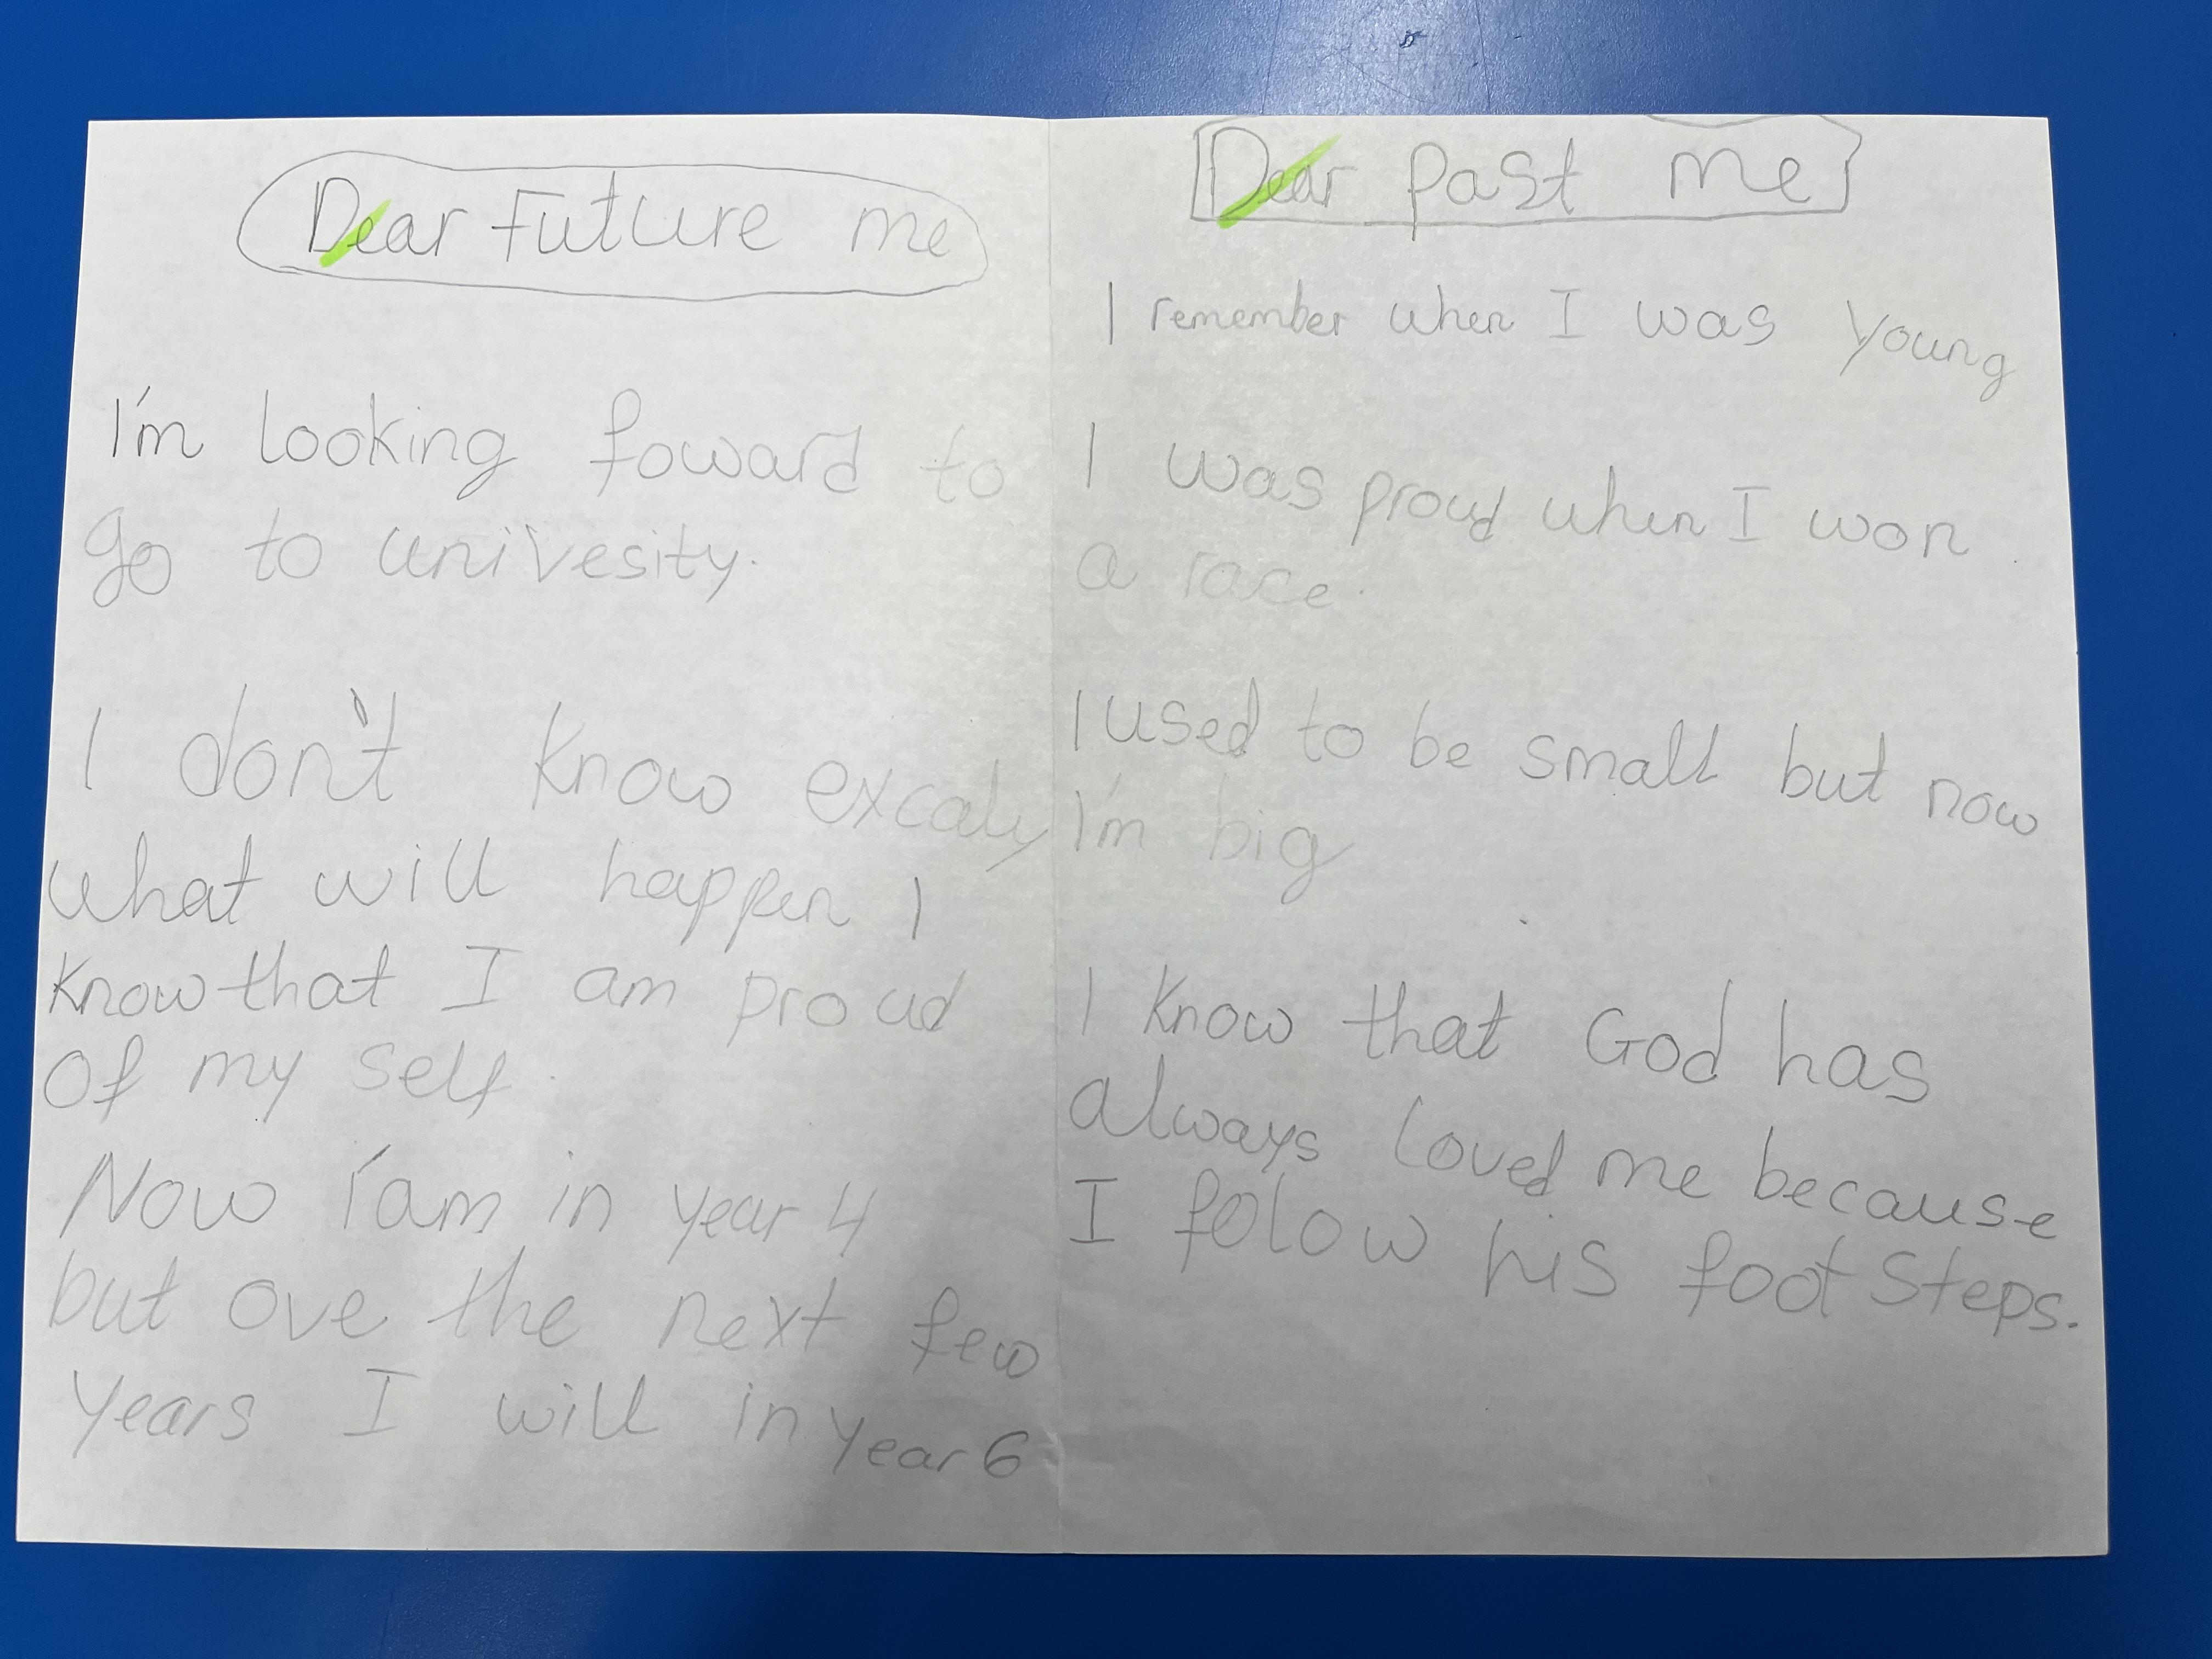 Dear Future me
I'm looking foward to
go to univesity.
I don't know excaly
what will happen I
know that I am proud
of my self.
Now I'am in year 4
but ove the next few
years I will in year 6
Dear past me
I remember when I was young
I was proud when I won
a race.
I used to be small but now
I'm big
I know that God has
always loved me because
I folow his foot steps.